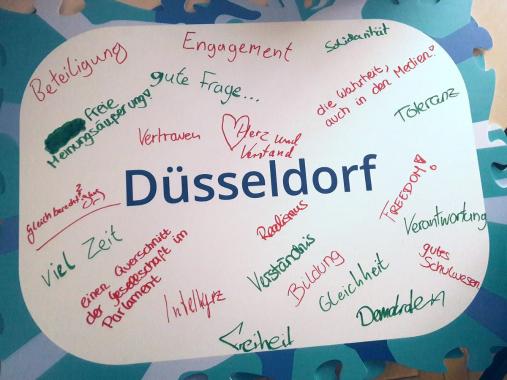 Engagement
Solidarität
Beteiligung
gute Frage...
die Wahrheit,
auch in den Medien!
Toleranz
Freie
Meinungsäußerung
Vertrauen
Herz und
Verstand
Düsseldorf
FREEDOM!
Verantwortung
Realismus
viel Zeit
einen Querschnitt
der Gesellschaft im
Parlament
Verständnis
Bildung
gutes
Schulwesen
Gleichheit
Freiheit